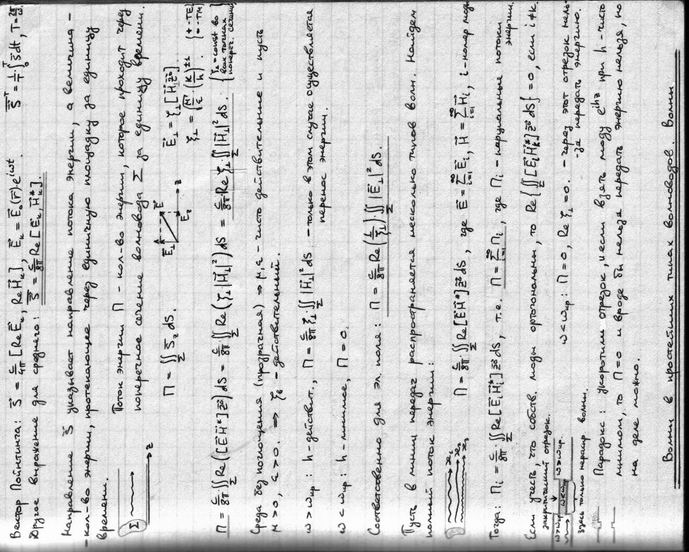 Вектор Пойнтинга: S = c/4π [Re E_к, Re H_к], E_к = E_к(r) e^{iωt}   S^T = 1/T ∫ S dt, T = 2π/ω.
Другое выражение для среднего: S = c/8π Re [E_к H_к*].
Направление S указывает направление потока энергии, а величина –
– кол-во энергии, протекающее через единичную площадку за единицу
времени.
Поток энергии П – кол-во энергии, которое проходит через
поперечное сечение волновода Σ за единицу времени.
П = ∬ S_z dS.   E_⊥ = ζ_⊥ [H_⊥ z⁰].
П = c/8π ∬ Re([E H*] z⁰) dS = c/8π ∬ Re(ζ_⊥ |H_⊥|²) dS = c/8π Re ζ_⊥ ∬ |H_⊥|² dS.
Среда без поглощения (прозрачная) ⇒ μ, ε – чисто действительные и пусть
μ > 0, ε > 0. ⇒ ζ – действительный.
ω > ω_кр: h – действит., П = c/8π ζ_⊥ ∬ |H_⊥|² dS – только в этом случае осуществляется
перенос энергии.
ω < ω_кр: h – мнимое, П = 0.
Соответственно для эл. поля: П = c/8π Re(1/ζ_⊥) ∬ |E_⊥|² dS.
Пусть в линии передач распространяется несколько типов волн. Найдем
полный поток энергии:
П = c/8π ∬ Re [E H*] z⁰ dS, где E = Σ E_i, H = Σ H_i, i – номер моды
Тогда: П_i = c/8π ∬ Re [E_i H_i*] z⁰ dS, т.е. П = Σ П_i, где П_i – парциальные потоки
энергии.
Если учесть, что собств. моды ортогональны, то Re{∬ [E_i H_k*] z⁰ dS} = 0, если i ≠ k.
ω > ω_кр ω < ω_кр ω > ω_кр
ω < ω_кр: П = 0, Re ζ_⊥ = 0. – через этот отрезок нель-
зя передать энергию.
Парадокс: укоротим отрезок, и если взять моду e^{ihz} при h – чисто
мнимом, то П = 0 и вроде бы нельзя передать энергию нельзя, но
на деле можно.
Волны в простейших типах волноводов. Волны